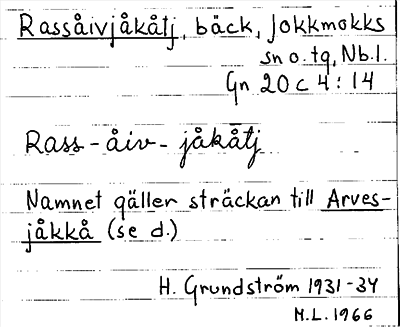 Rassåivjåkåtj, bäck, Jokkmokks
sn o. tg, Nb.l.
Gn 20 C 4:14
Rass-åiv-jåkåtj
Namnet gäller sträckan till Arves-
jåkkå (se d.)
H. Grundström 1931-34
M.L. 1966